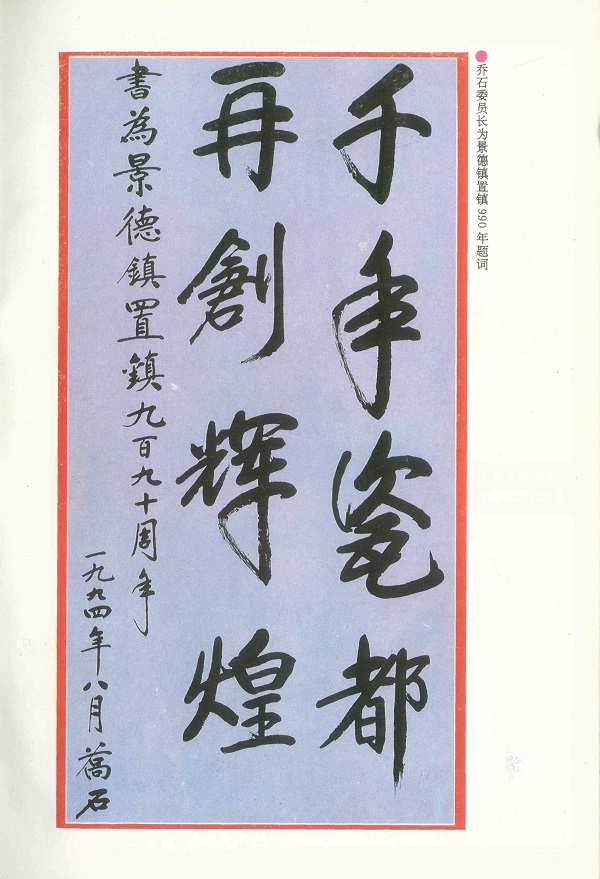 乔石委员长为景德镇置镇990年题词
千年瓷都
再創輝煌
書為景德鎮置鎮九百九十周年
一九九四年八月 喬石